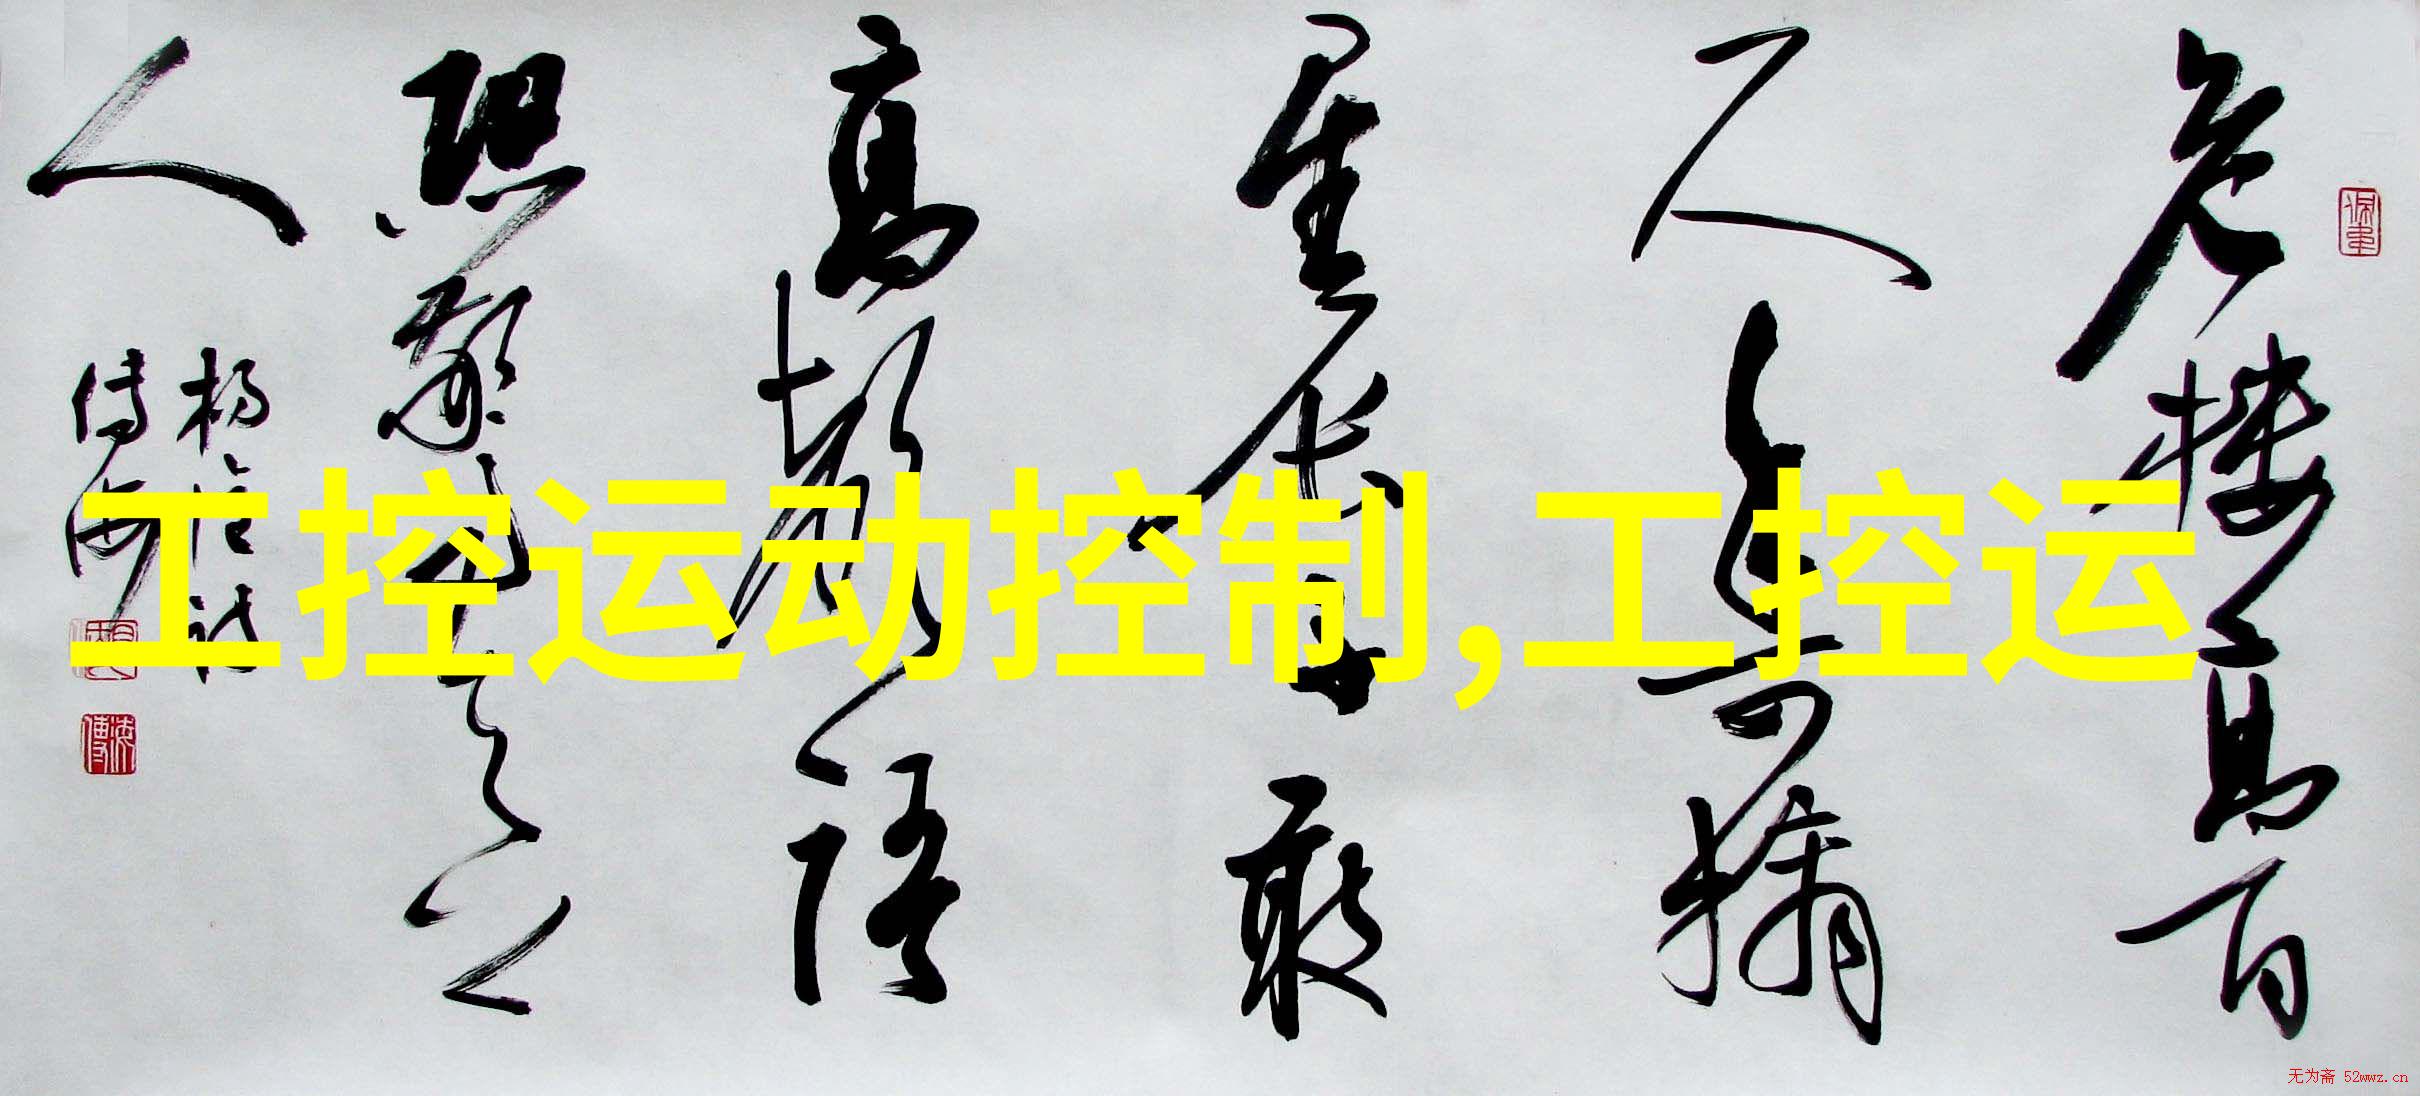 工控运动控制,工控运
危楼高百
尺手可摘
星辰不敢
高声语
恐惊天上
人
传海
无为斋 52wwz.cn